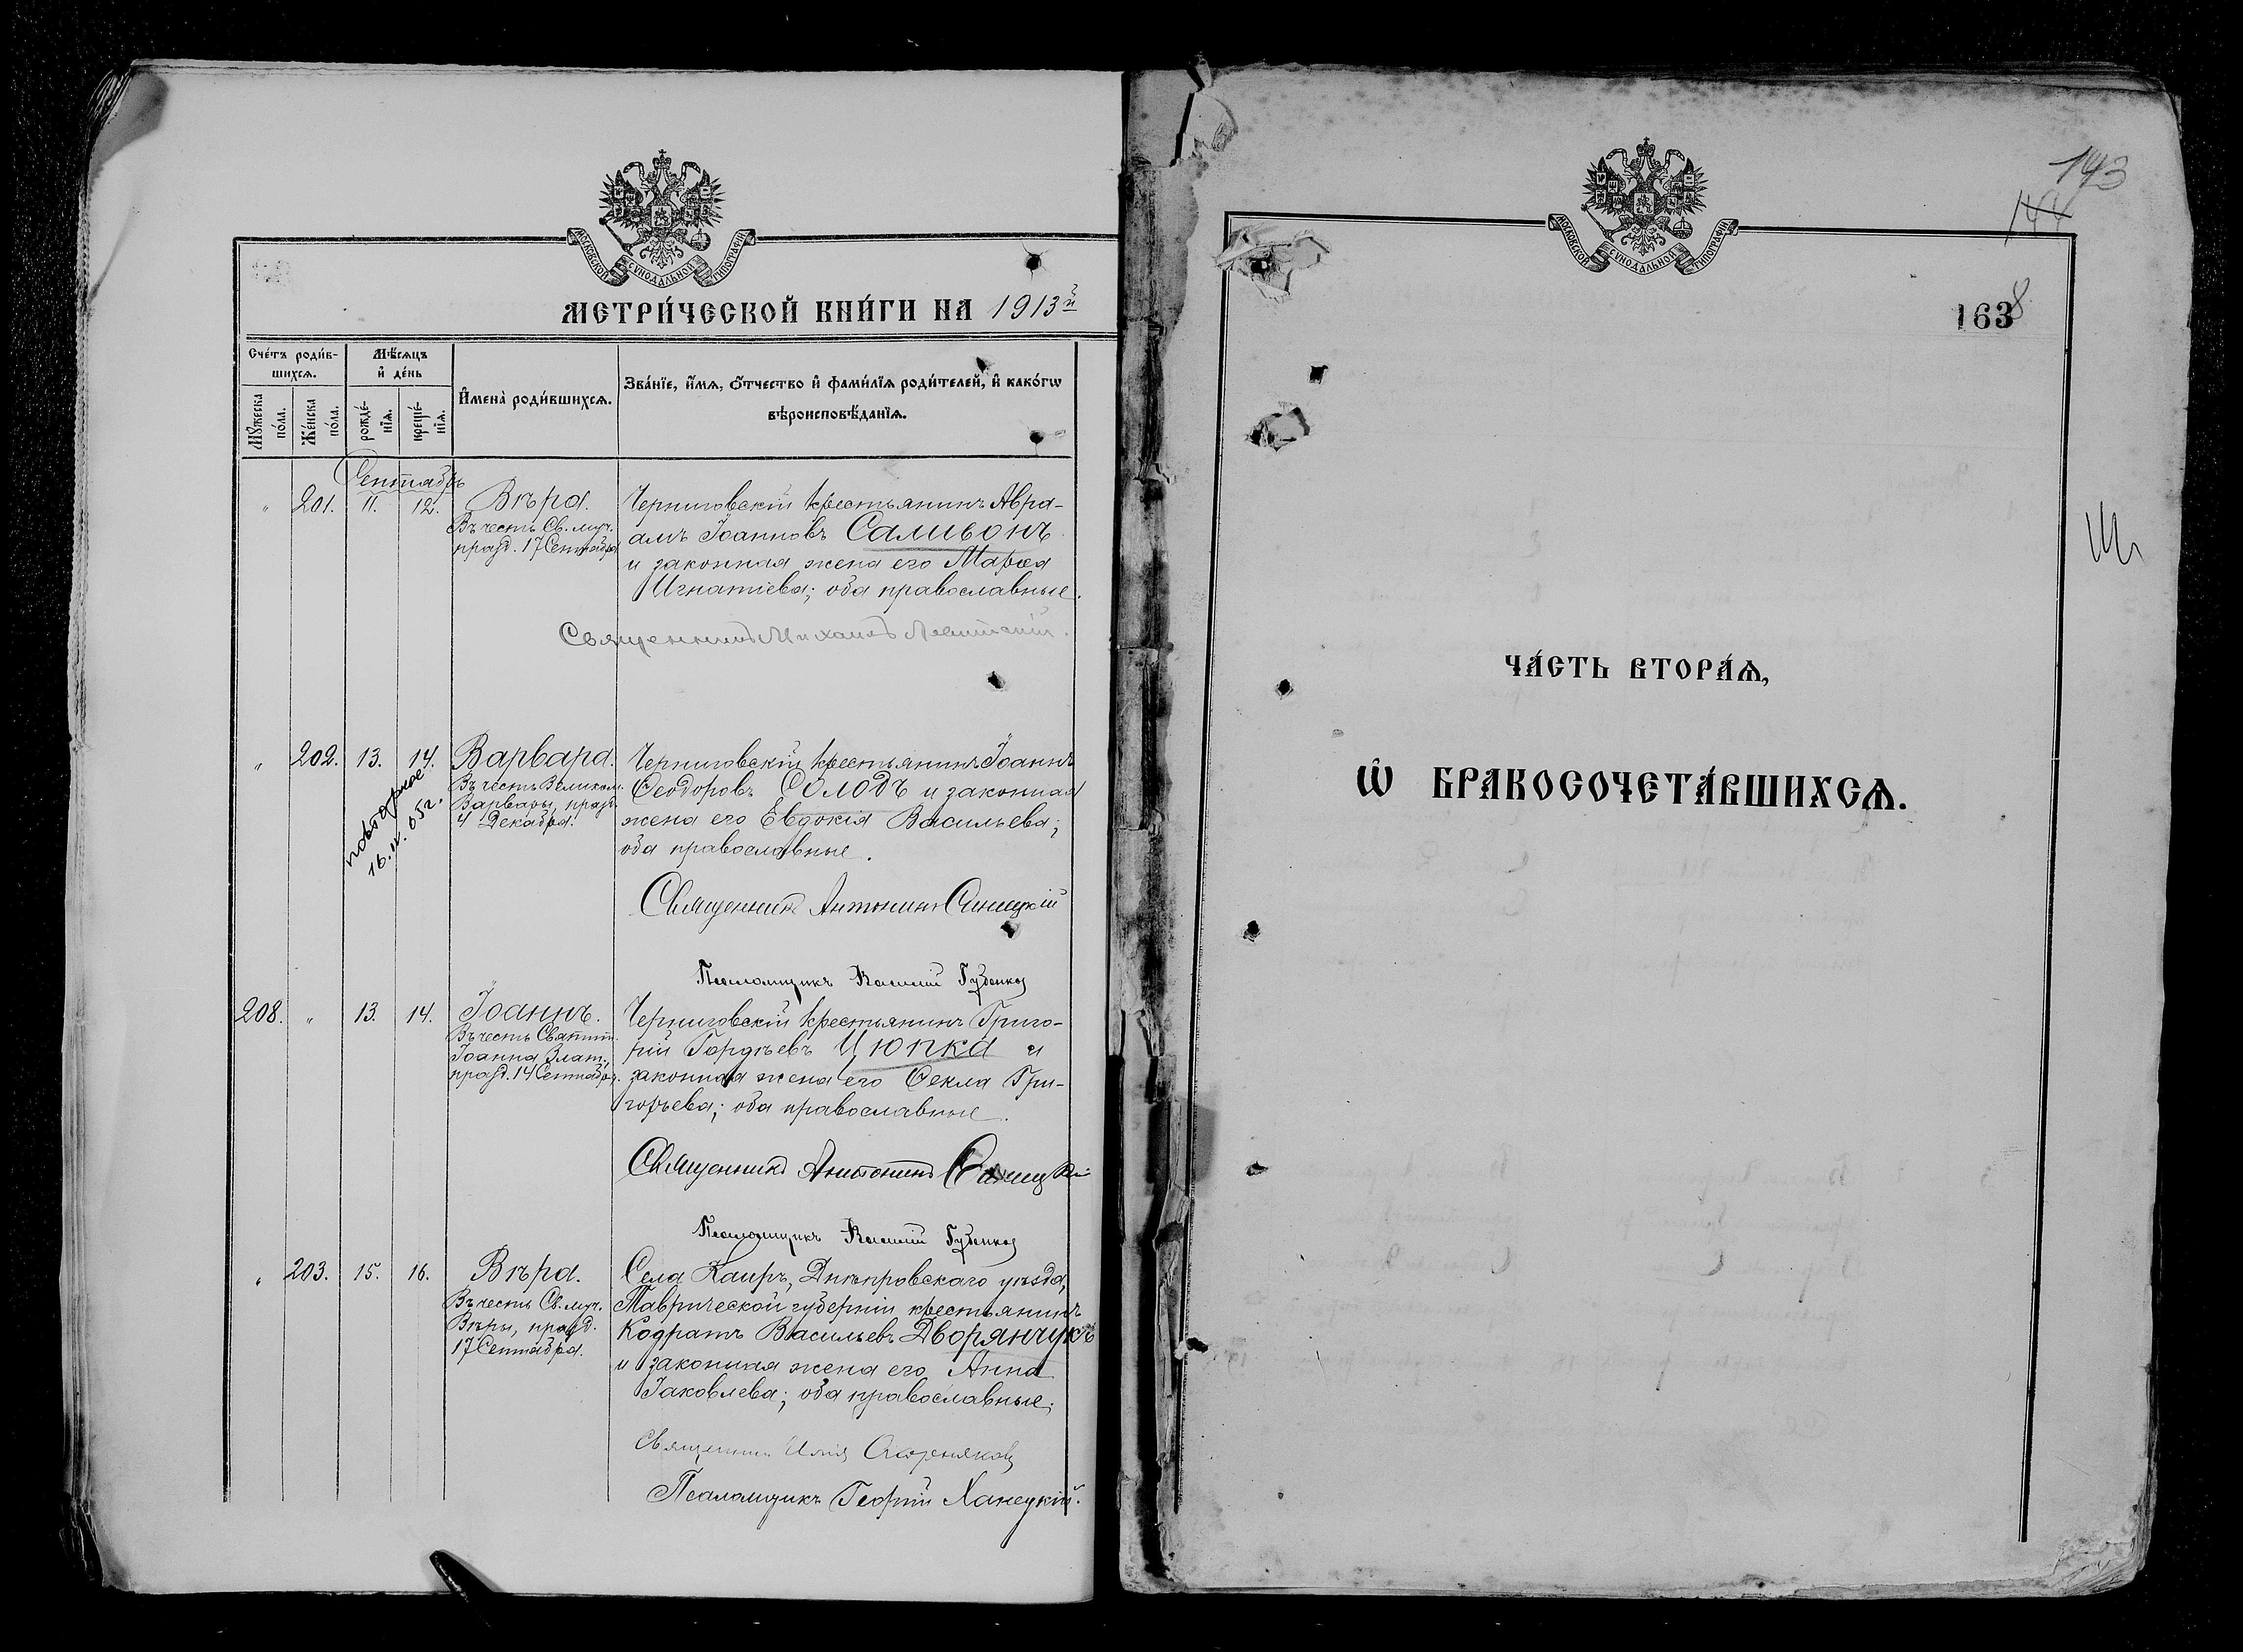 МОСКОВСКОЙ СѴНОДАЛЬНОЙ ТИПОГРАФІИ
МЕТРИ́ЧЕСКОЙ КНИ́ГИ НА 1913й
Сче́тъ роди́в-
шихсѧ.
Мѣ́сѧцъ
и҆ де́нь
И҆мена̀ роди́вшихсѧ.
Зва́нїе, и҆́мѧ, ѻ҆́тчество и҆ фами́лїѧ роди́телей, и҆ како́гѡ
вѣроисповѣ́данїѧ.
Мꙋ́жеска
по́ла.
Же́нска
по́ла.
рожде́-
нїѧ.
креще́-
нїѧ.
Сентябрь
" 201. 11. 12. Вѣра.
Въ честь Св. муч.
празд. 17 Сентября
Черниговскій крестьянинъ Авра-
амъ Іоанновъ Самсонъ
и законная жена его Марѳа
Игнатіева; оба православные.
Священникъ Михаилъ
" 202. 13. 14. Варвара.
Въ честь Великом.
Варвары, празд.
4 Декабря.
повторное
16.IV.05г.
Черниговскій крестьянинъ Іоаннъ
Ѳеодоровъ Солодъ и законная
жена его Евдокія Васильева;
оба православные.
Священникъ Антонинъ Синицкій
Псаломщикъ Василій Губенко
208. " 13. 14. Іоаннъ.
Въ честь Святит.
Іоанна Злат.,
празд. 14 Сентября.
Черниговскій крестьянинъ Григо-
рій Гордѣевъ Цюпка и
законная жена его Ѳекла Гри-
горьева; оба православные.
Священникъ Антонинъ Синицкій
Псаломщикъ Василій Губенко
" 203. 15. 16. Вѣра.
Въ честь Св. муч.
Вѣры, празд.
17 Сентября.
Села Каиръ, Днѣпровскаго уѣзда,
Таврической губерніи крестьянинъ
Кодратъ Васильевъ Дворянчукъ
и законная жена его Анна
Іаковлева; оба православные.
Священникъ Илія
Псаломщикъ Георгій Ханецкій.
143
144
МОСКОВСКОЙ СѴНОДАЛЬНОЙ ТИПОГРАФІИ
1638
ЧА́СТЬ ВТОРА́Ѧ,
Ѽ БРАКОСОЧЕТА́ВШИХСѦ.